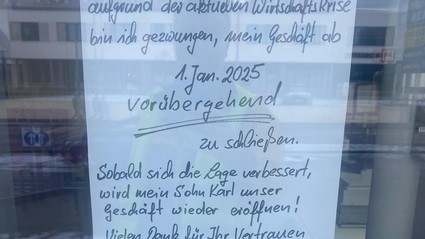 aufgrund der aktuellen Wirtschaftskrise
bin ich gezwungen, mein Geschäft ab
1. Jan. 2025
vorübergehend
zu schließen.
Sobald sich die Lage verbessert,
wird mein Sohn Karl unser
Geschäft wieder eröffnen!
Vielen Dank für Ihr Vertrauen